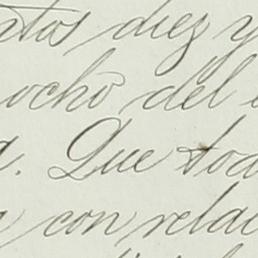 diez y
ocho del
Que tod
con relac